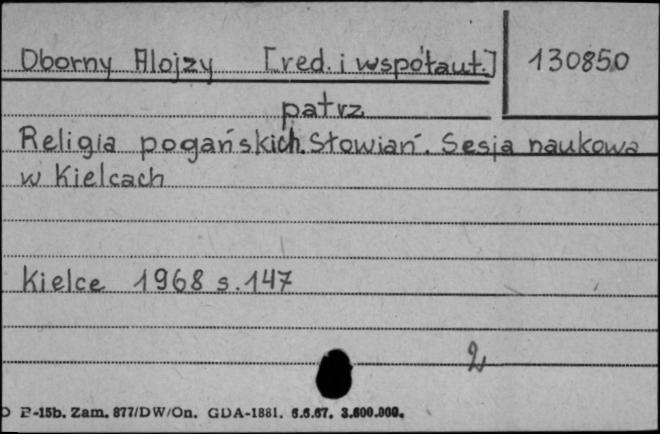 Oborny Alojzy [red. i współaut.] 130850
patrz
Religia pogańskich Słowian. Sesja naukowa
w Kielcach
Kielce 1968 s. 147
2
P-15b. Zam. 877/DW/On. GDA-1881. 6.6.67. 3.600.000.